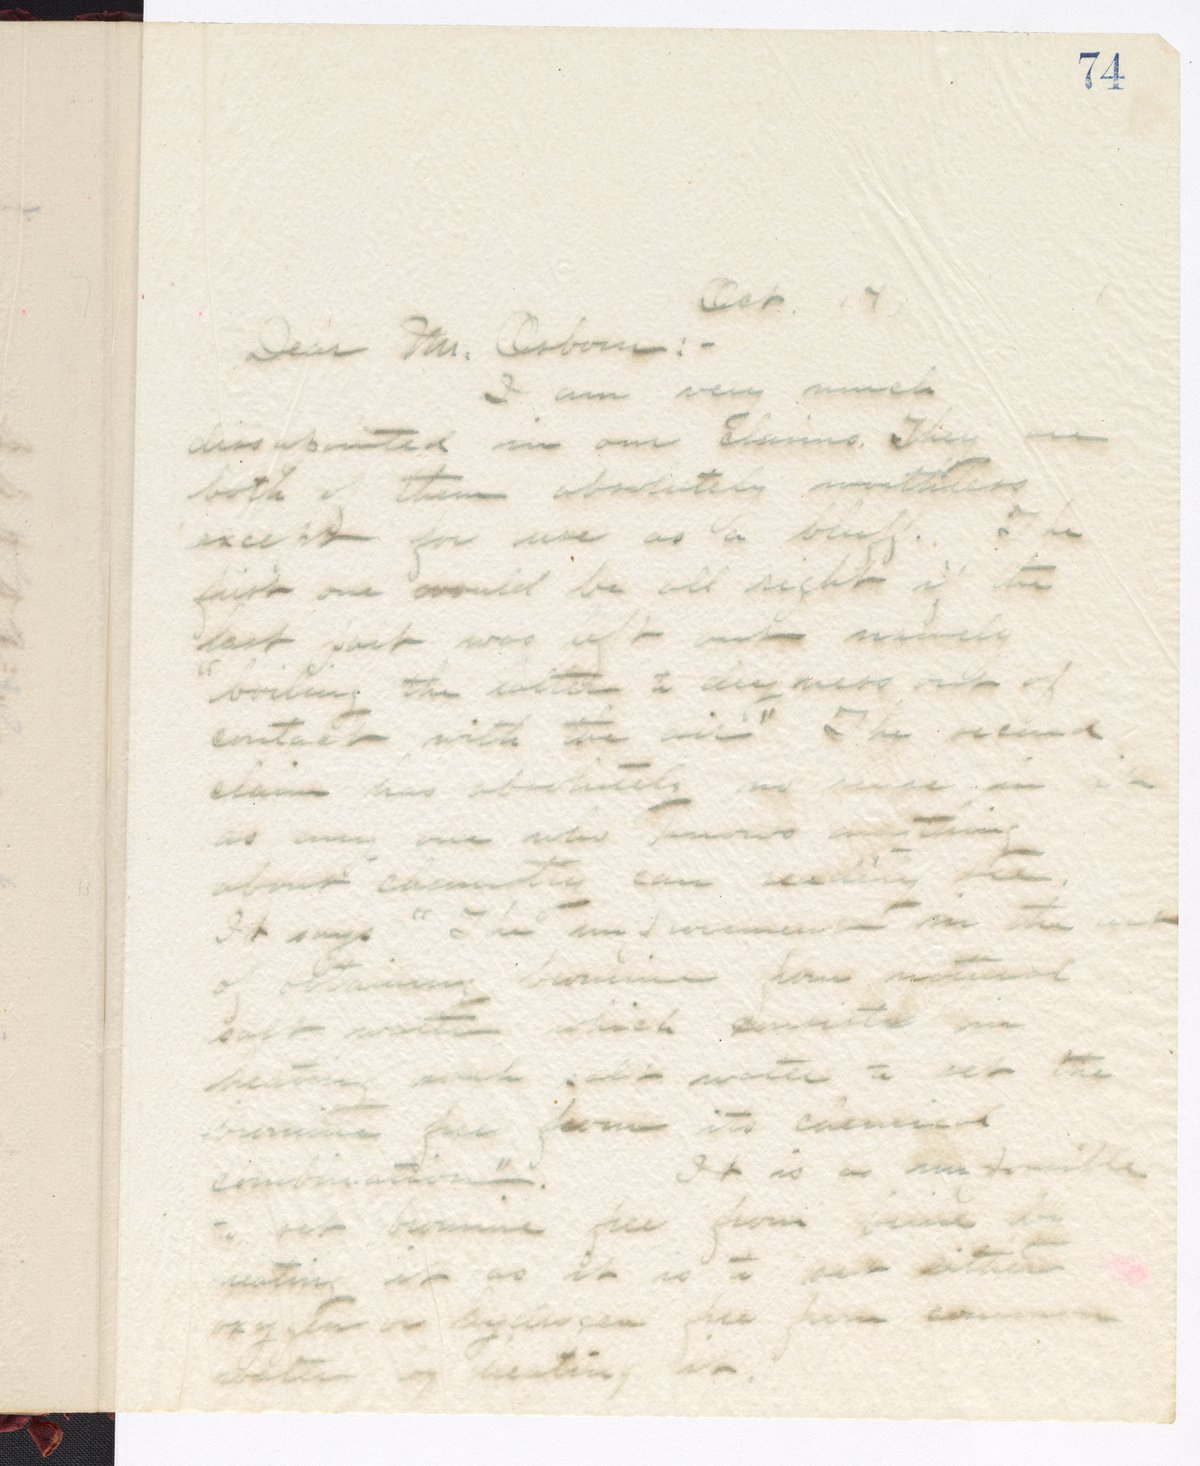 74
Oct. 17,
Dear Mr. Osborn:-
I am very much
dissapointed in our Claims. They are
both of them absolutely worthless
except for use as a bluff. The
first one would be all right if the
last part was left out namely
"boiling the latter to dryness out of
contact with the air" The second
claim has absolutely no sense in it
as any one who knows anything
about chemistry can readily see.
It says "The improvement in the art
of obtaining bromine from natural
salt water which consists in
heating such salt water to set the
bromine free from its chemical
combination". It is as impossible
to set bromine free from brine by
heating it as it is to set either
oxygen or hydrogen free from common
water by heating it.